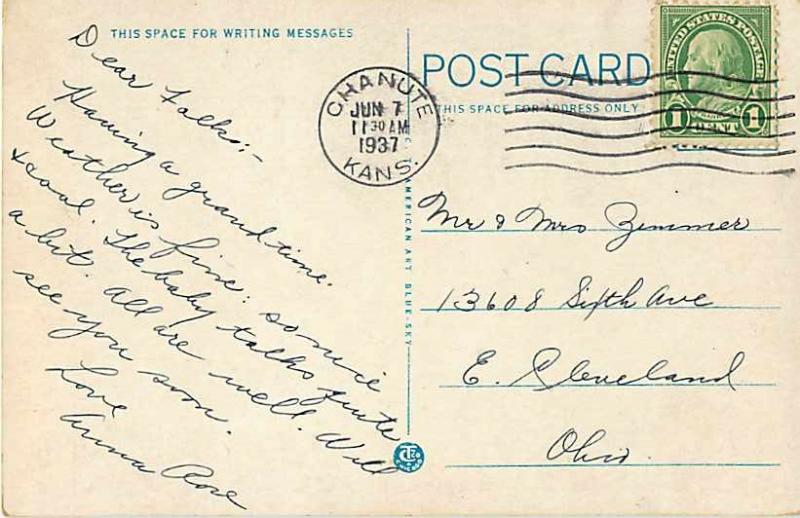 THIS SPACE FOR WRITING MESSAGES
Dear Folks:-
Having a grand time.
Weather is fine: so nice
& cool. The baby talks quite
a bit. All are well. Will
see you soon.
Love
Anna Rose
POST CARD
THIS SPACE FOR ADDRESS ONLY
CHANUTE
JUN 7
11 30 AM
1937
KANS.
UNITED STATES POSTAGE
1 CENT 1
AMERICAN ART BLUE-SKY
Mr & Mrs Zimmer
13608 Sixth Ave
E. Cleveland
Ohio.